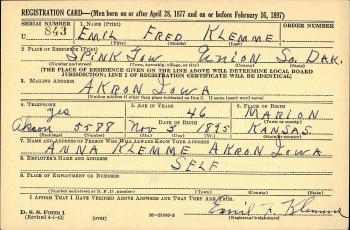 REGISTRATION CARD—(Men born on or after April 28, 1877 and on or before February 16, 1897)
SERIAL NUMBER 1. NAME (Print) ORDER NUMBER
U 843 EMIL FRED KLEMME
(First) (Middle) (Last)
2. PLACE OF RESIDENCE (Print)
SPINK TWP UNION SO. DAK.
(Number and street) (Town, township, village, or city) (County) (State)
[THE PLACE OF RESIDENCE GIVEN ON THE LINE ABOVE WILL DETERMINE LOCAL BOARD
JURISDICTION; LINE 2 OF REGISTRATION CERTIFICATE WILL BE IDENTICAL]
3. MAILING ADDRESS
AKRON IOWA
[Mailing address if other than place indicated on line 2. If same insert word same]
4. TELEPHONE 5. AGE IN YEARS 6. PLACE OF BIRTH
yes 46 MARION
DATE OF BIRTH
Akron Nov 5 1895 KANSAS
(Exchange) (Number) (Mo.) (Day) (Yr.) (State or country)
7. NAME AND ADDRESS OF PERSON WHO WILL ALWAYS KNOW YOUR ADDRESS
ANNA KLEMME AKRON IOWA
8. EMPLOYER'S NAME AND ADDRESS
SELF
9. PLACE OF EMPLOYMENT OR BUSINESS
(Number and street or R. F. D. number) (Town) (County) (State)
I AFFIRM THAT I HAVE VERIFIED ABOVE ANSWERS AND THAT THEY ARE TRUE.
D. S. S. Form 1
(Revised 4-1-42) (over) Emil F. Klemme
(Registrant's signature)